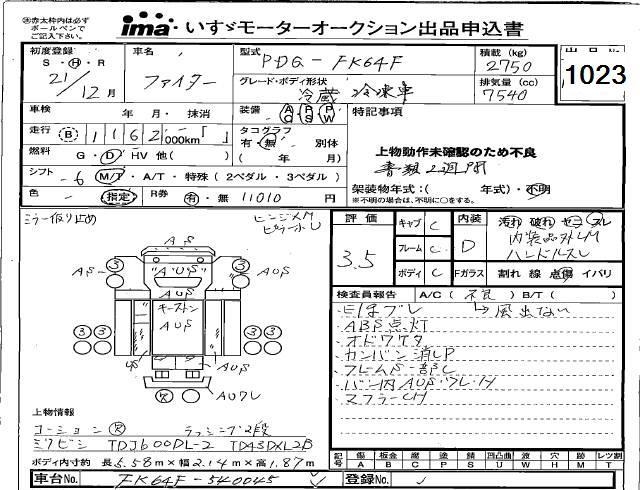 ※赤太枠内は必ず
ボールペンで
ご記入下さい。
ima いすゞモーターオークション出品申込書
初度登録 S・H・R 21/12月
車名 ファイター
型式 PDG-FK64F
積載 (kg) 2750
出品No.
1023
グレード・ボディ形状 冷蔵冷凍車
排気量 (cc) 7540
車検 年・月・抹消
装備 AC PS PW
特記事項
走行 B 1162 000km「 」
タコグラフ 有・無 別体
( 年 月)
上物動作未確認のため不良
書類2週間
燃料 G・D・HV 他( )
シフト -6 M/T・A/T・特殊(2ペダル・3ペダル)
架装物年式:( 年式)・不明
※不明の場合は、不明に○をする。
色 - 指定 R券 有・無 11010 円
ミラー仮り止め
評価 3.5
キャブ C
フレーム C
ボディ C
内装 D
汚れ 破れ セコ スレ
内装品外しM
ハンドルスレ
Fガラス 割れ 線 点傷 イバリ
AS
"AUS"
AS 3
3 AUS
AUS
AUS
キーストン
AUS
3 3
3 3
US
AUS
AUフレ
検査員報告 A/C( 不良 ) B/T( )
→風出ない
ABS点灯
カンバン消し
フレームS一部C
バン内AUS・フレ・ハ
マフラーCH
上物情報
ミツビシ TDJ600DL-2 TD43DXL2B
ラッシング2段
ボディ内寸約 長5.58m×幅2.14m×高1.87m
記号 傷A 板金B 腐C 塗P サS 凹凸曲U 波W 穴H 跡M レツ割T
車台No. FK64F-540045
登録No.